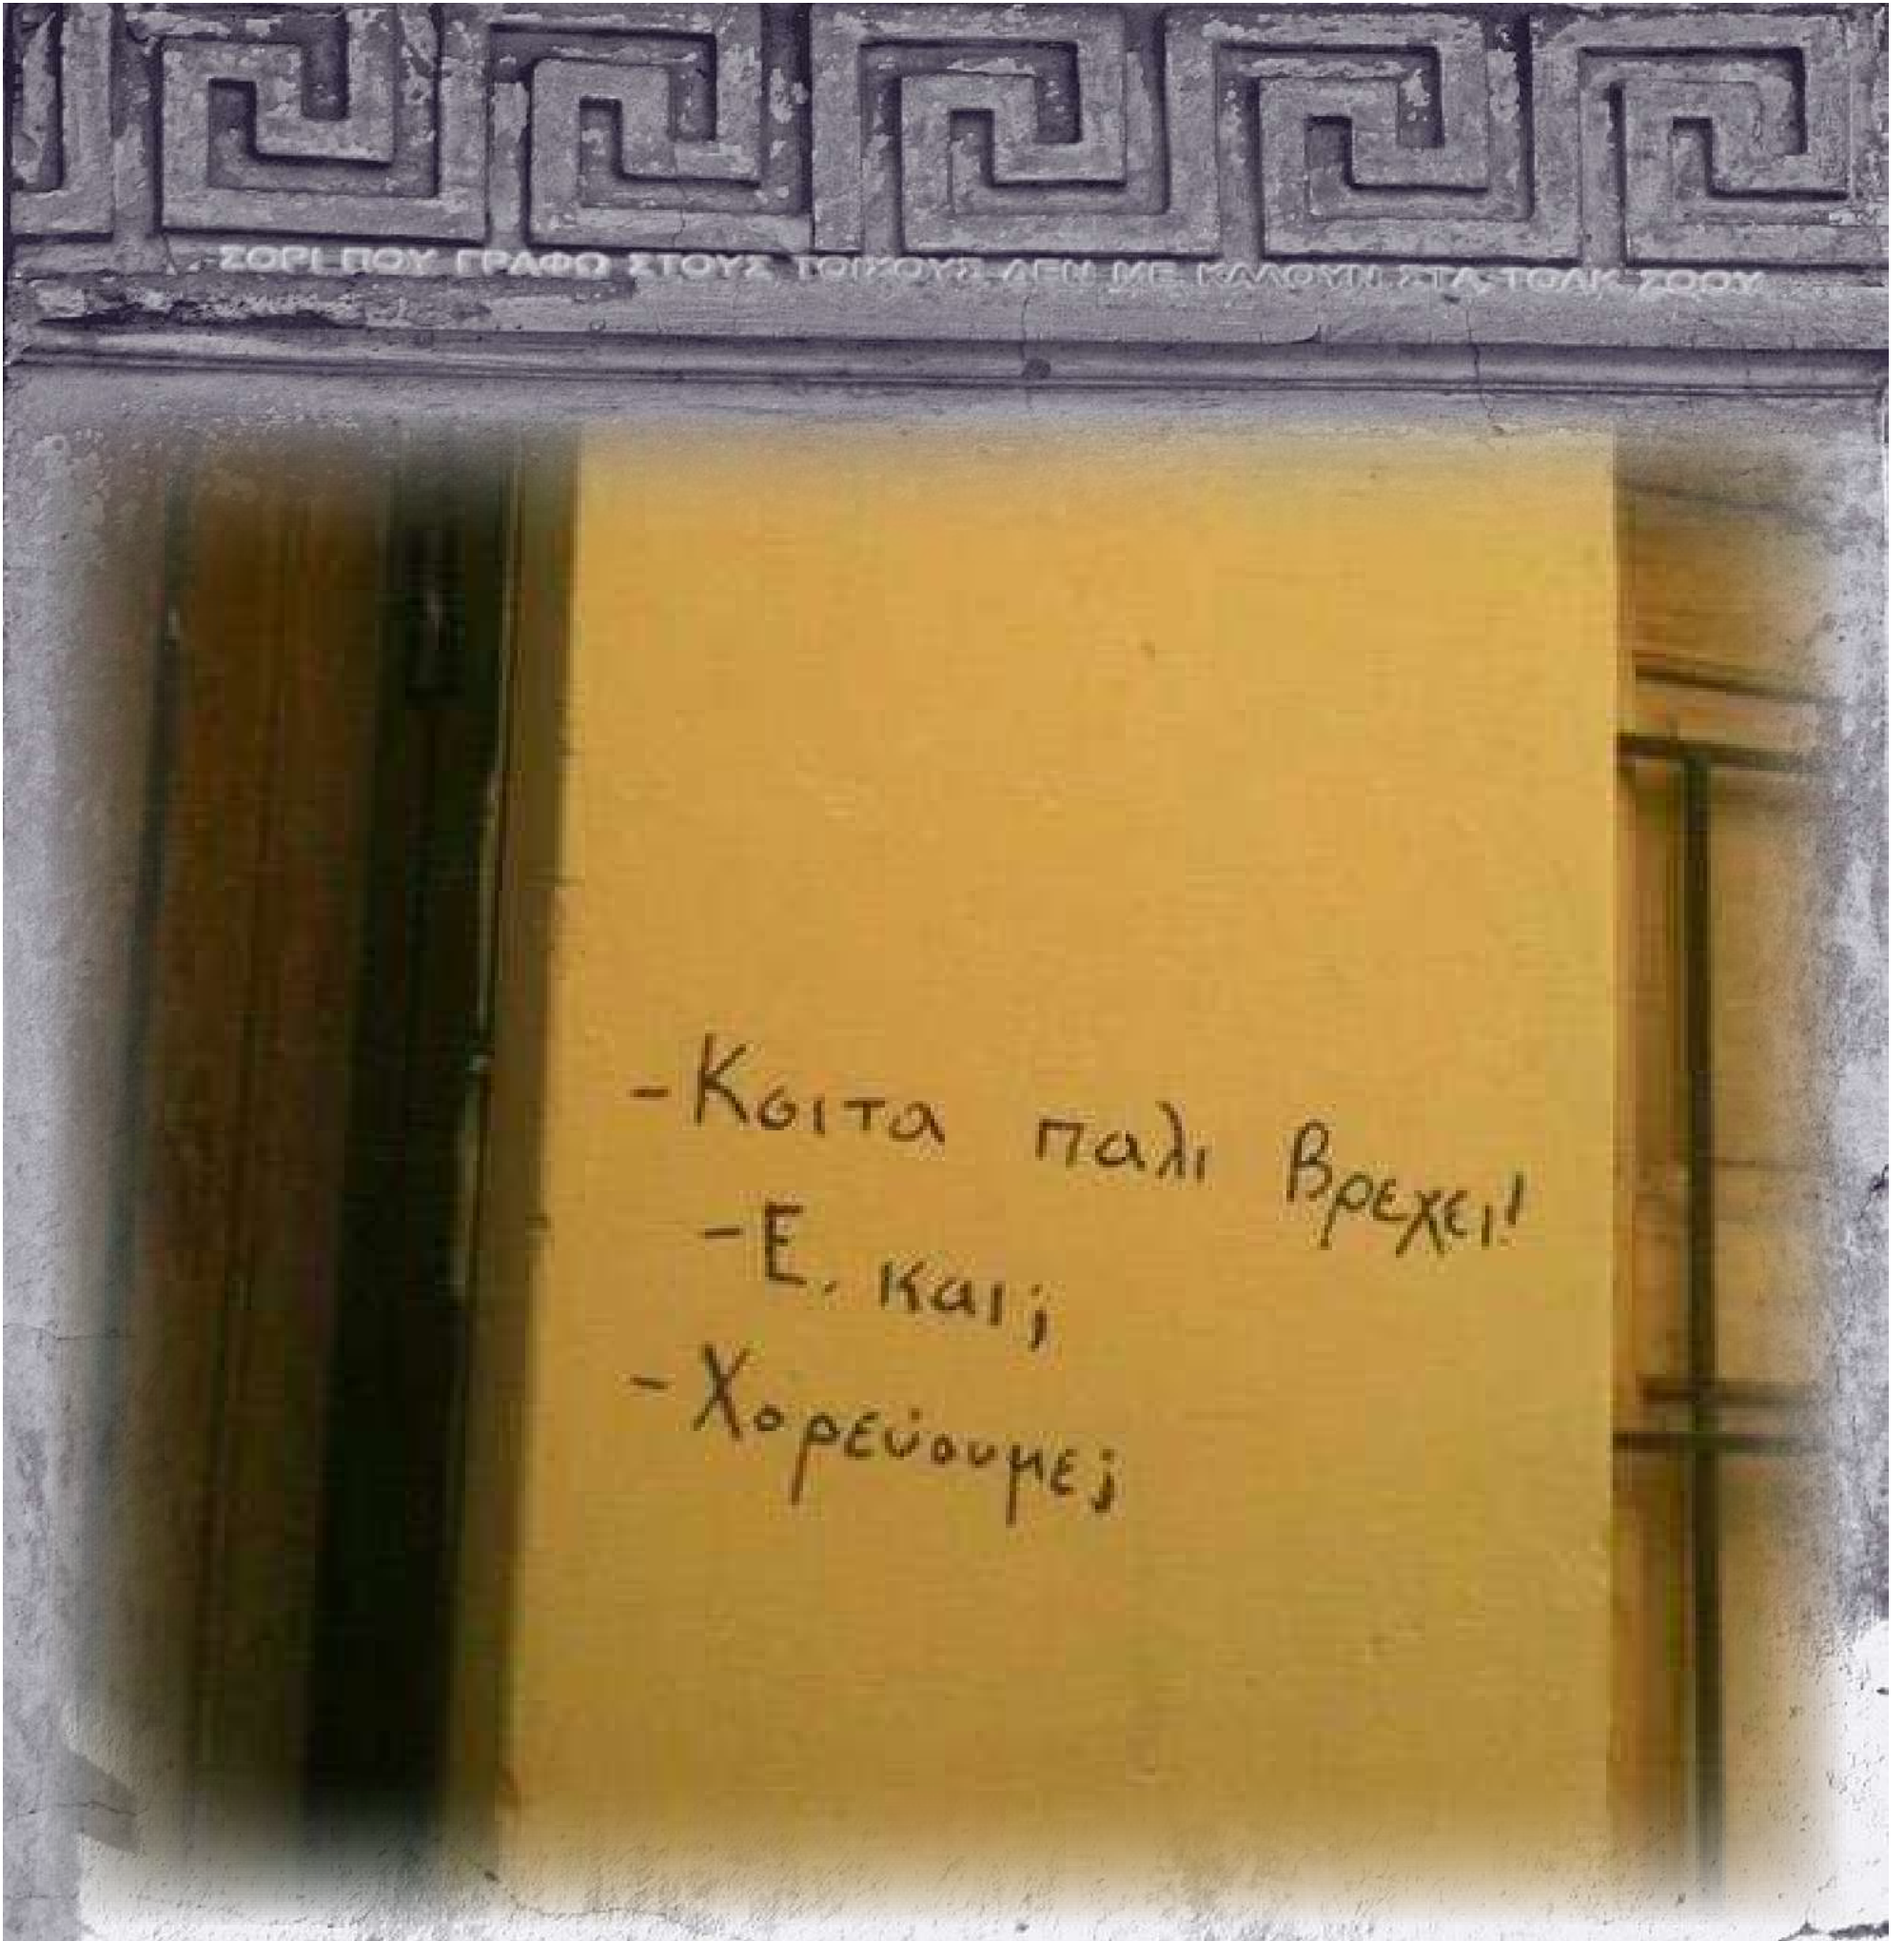 ΣΟΡΙ ΠΟΥ ΓΡΑΦΩ ΣΤΟΥΣ ΤΟΙΧΟΥΣ ΔΕΝ ΜΕ ΚΑΛΟΥΝ ΣΤΑ ΤΟΛΚ ΣΟΟΥ
-Κοιτα παλι βρεχει!
-Ε. και;
-Χορεύουμε;